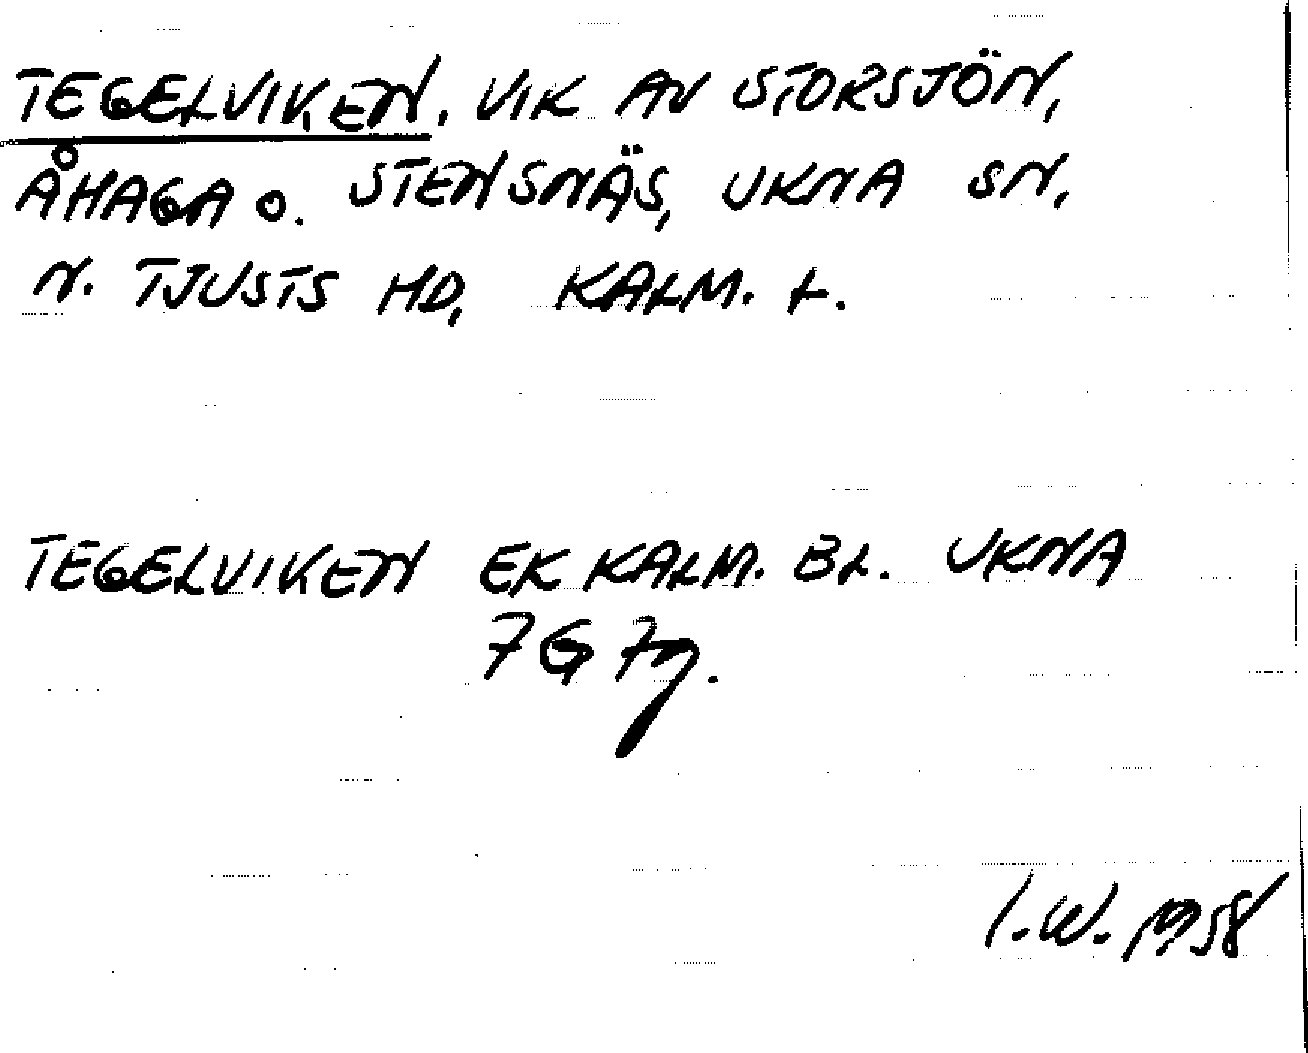 TEGELVIKEN, VIK AV STORSJÖN,
ÅHAGA O. STENSNÄS, UKNA SN,
N. TJUSTS HD, KALM. L.
TEGELVIKEN EK KALM. BL. UKNA
7G 7g.
I.W. 1958